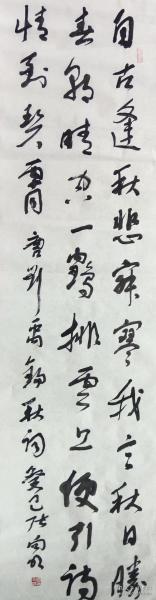 自古逢秋悲寂寥我言秋日勝
春朝晴空一鶴排雲上便引詩
情到碧霄唐劉禹錫秋詞癸巳